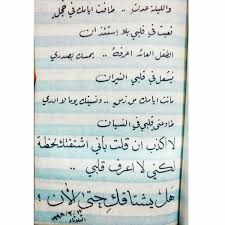 والليلة عدت .. طافت ايامك في خجل
تعبث في قلبي بلا استئذان
الطفل العائد اعرفه .. يمسك بصدري
يشعل في قلبي النيران
ماتت ايامك من زمن .. ونسيتك يوما لا ادري
طاوعني قلبي في النسيان
لا اكذب ان قلت بأني اشتقتك لحظة
لكني لا اعرف قلبي ..
هل يشتاقك حتى الآن ؟
الثلاثاء